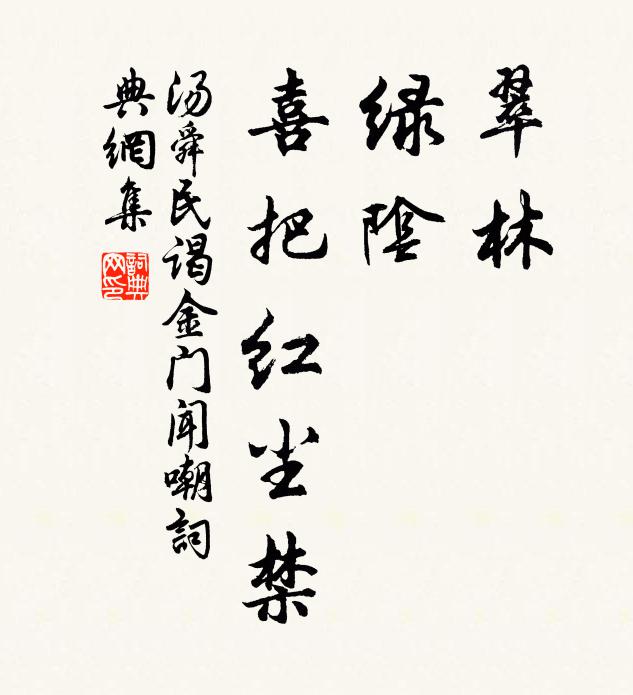 翠林
绿陰
喜把红尘禁
汤舜民谒金门闻嘲詞
典網集
詞典网印